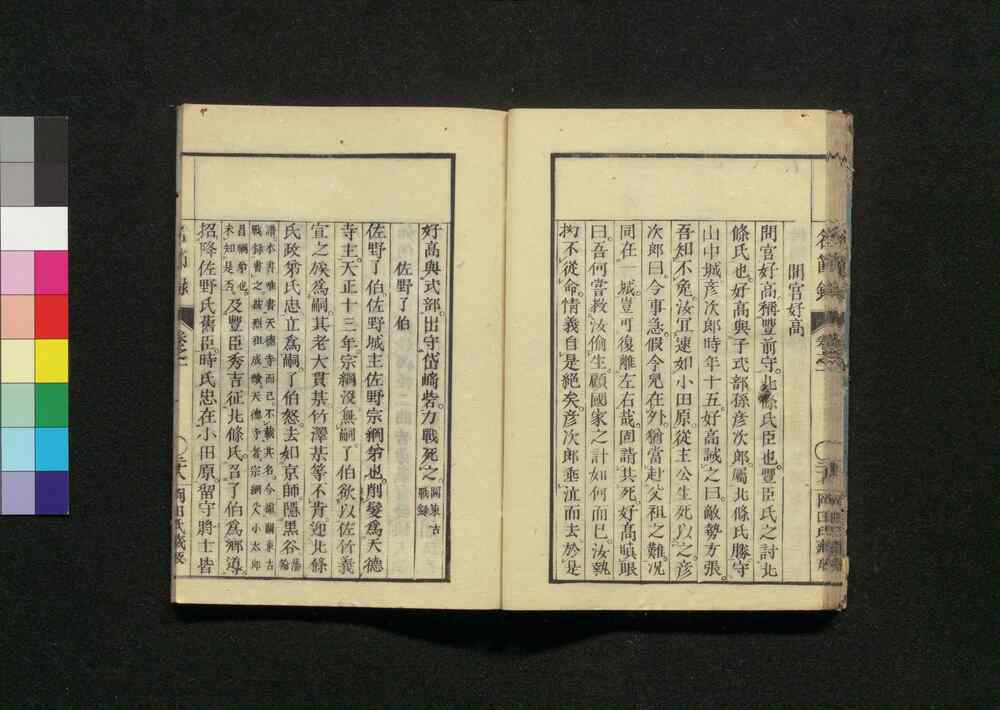 間官好高
間官好高稱豐前守北條氏臣也豐臣氏之討北
條氏也好高與子式部孫彥次郎屬北條氏勝守
山中城彥次郎時年十五好高誡之曰敵勢方張
吾知不免汝宜速如小田原從主公生死以之彥
次郎曰今事急假令兒在外猶當赴父祖之難況
同在一城豈可復離左右哉固請其死好高瞋眼
曰吾何嘗教汝偷生顧國家之計如何而已汝執
拘不從命情義自是絕矣彥次郎垂泣而去於是
好高與式部出守岱崎砦力戰死之關東古戰錄
佐野了伯
佐野了伯佐野城主佐野宗綱弟也削髮為天德
寺主天正十三年宗綱沒無嗣了伯欲以佐竹義
宣之族為嗣其老大貫基竹澤基等不肯迎北條
氏政弟氏忠立為嗣了伯怒去如京師隱黑谷
諸本書唯書天德寺而已不載其名今據關東古
戰錄書之按烈祖成績天德寺者宗綱父小太郎
昌綱弟也未知是否及豐臣秀吉征北條氏召了伯為鄉導
招降佐野氏舊臣時氏忠在小田原留守將士皆
名節錄 卷之二 岡田氏藏版